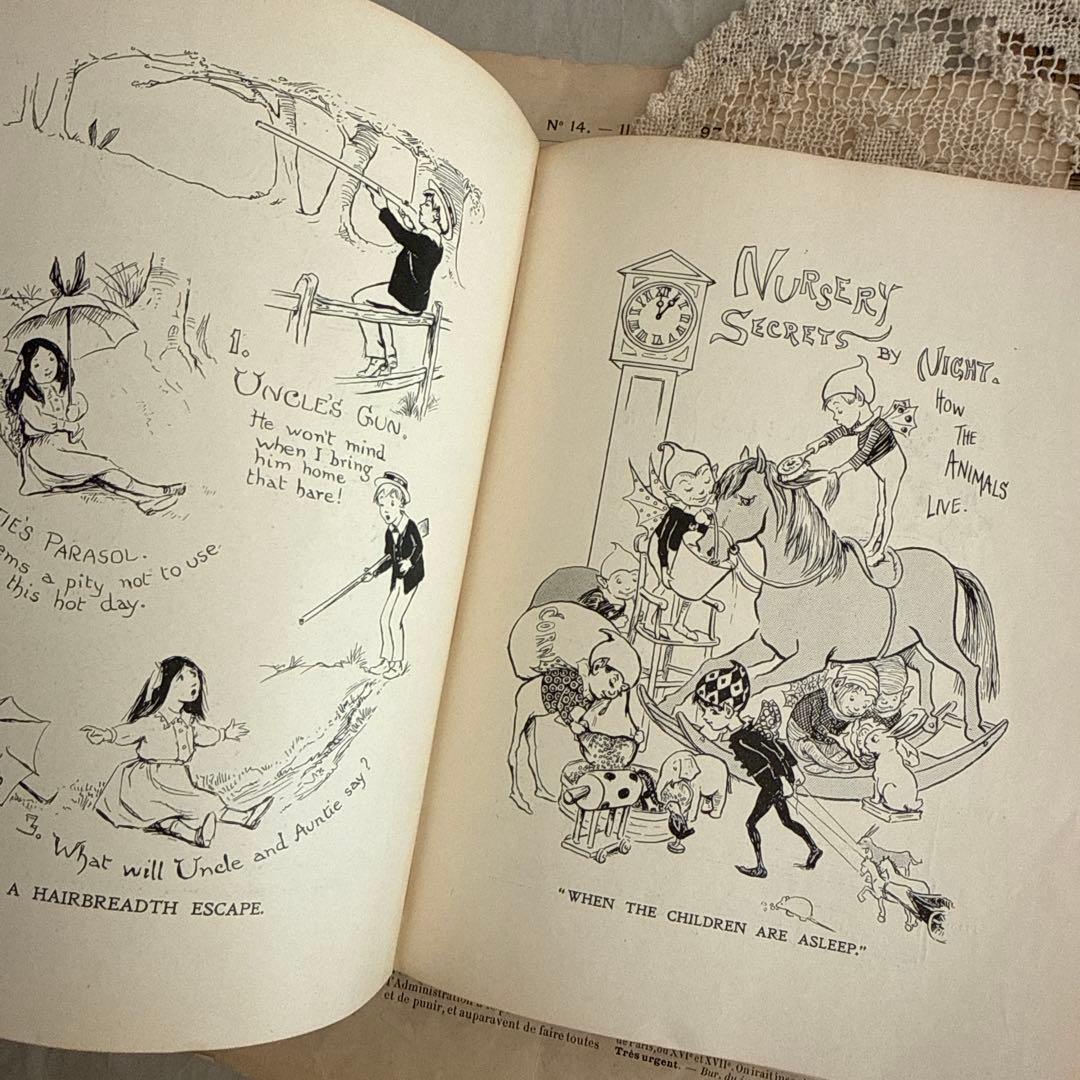 1.
UNCLE'S GUN.
He won't mind
when I bring
him home
that hare!
PARASOL.
a pity not to use
this hot day.
3. What will Uncle and Auntie say?
A HAIRBREADTH ESCAPE.
Nº 14. —
97
NURSERY
SECRETS BY NIGHT.
HOW
THE
ANIMALS
LIVE.
CORN
"WHEN THE CHILDREN ARE ASLEEP."
l'Administration
et de punir, et auparavent de faire toutes
de Paris, ou XVIe et XVIIe. On irait
Très urgent. — Bur. du